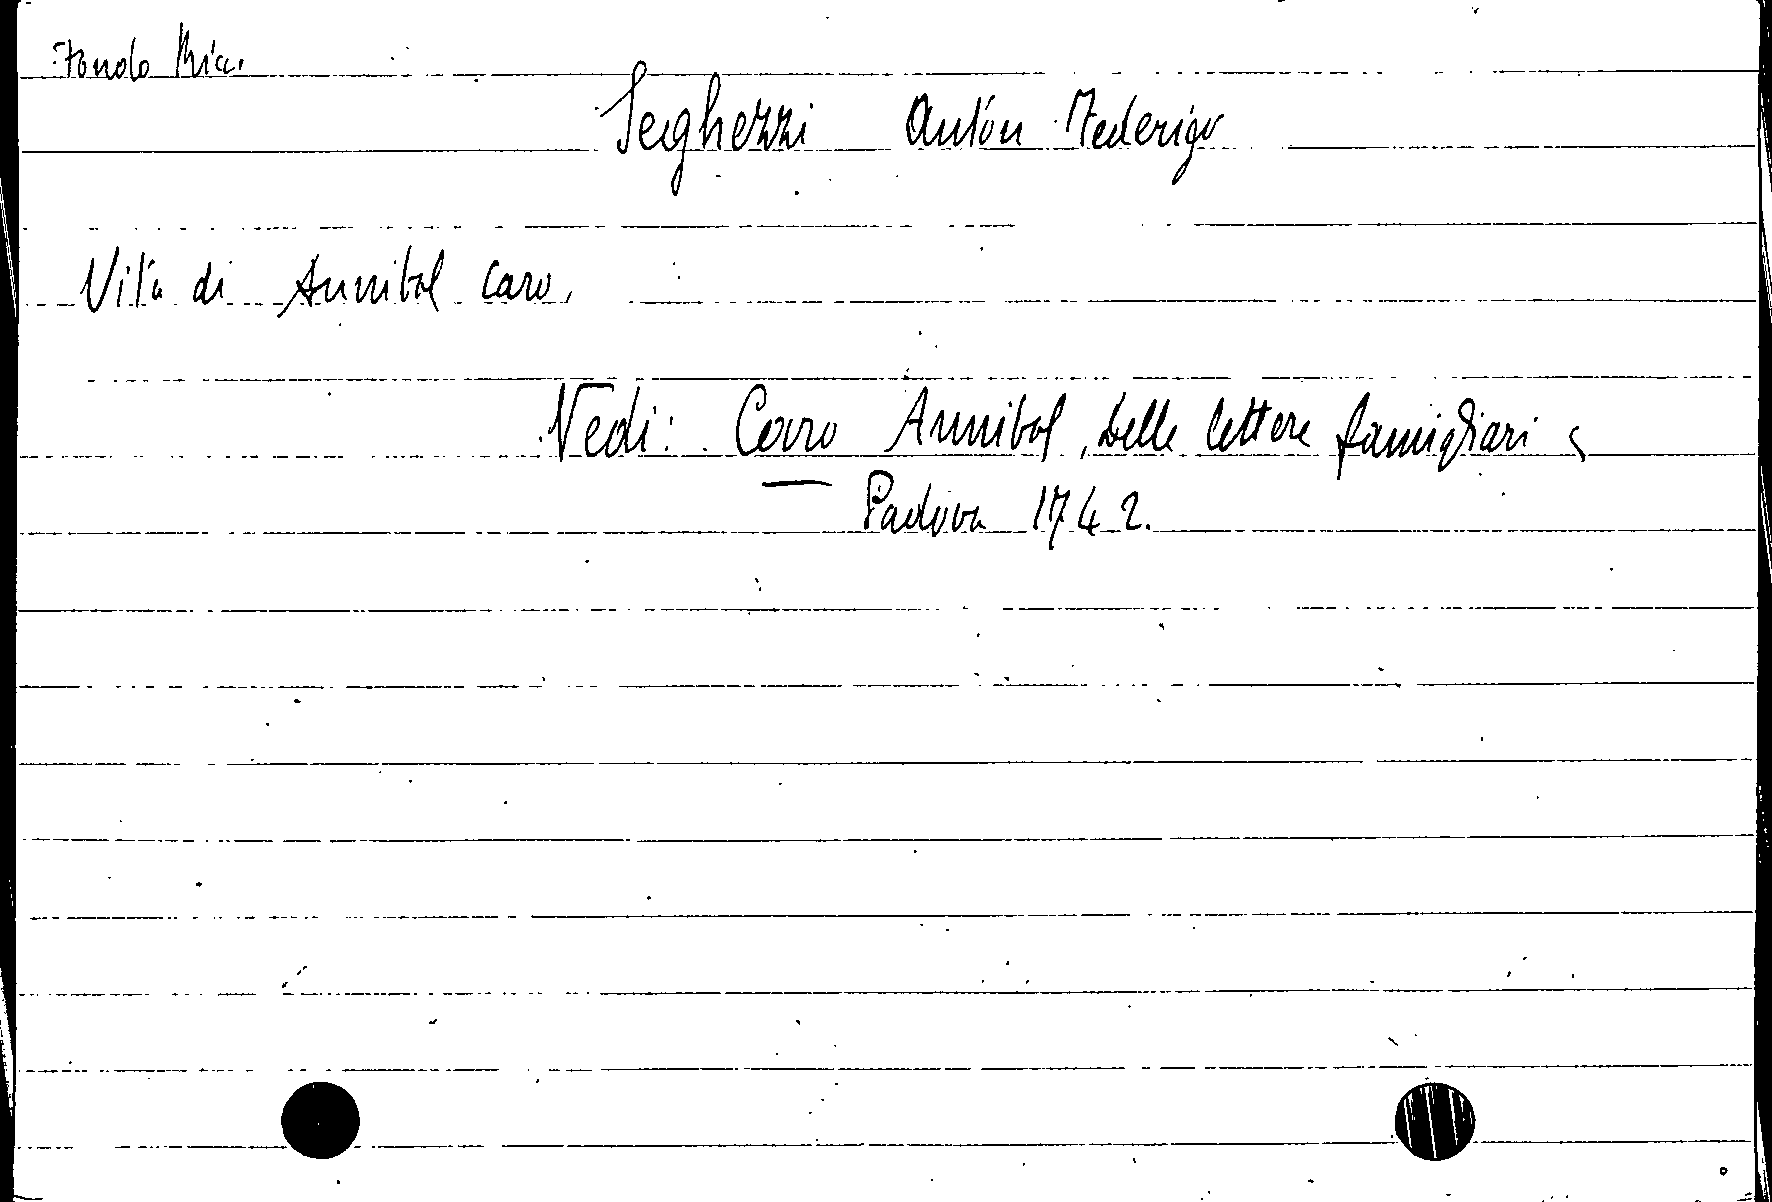 Fondo Ricc.
Seghezzi Anton Federigo
Vita di Annibal Caro.
Vedi: Caro Annibal, Delle lettere famigliari
Padova 1742.